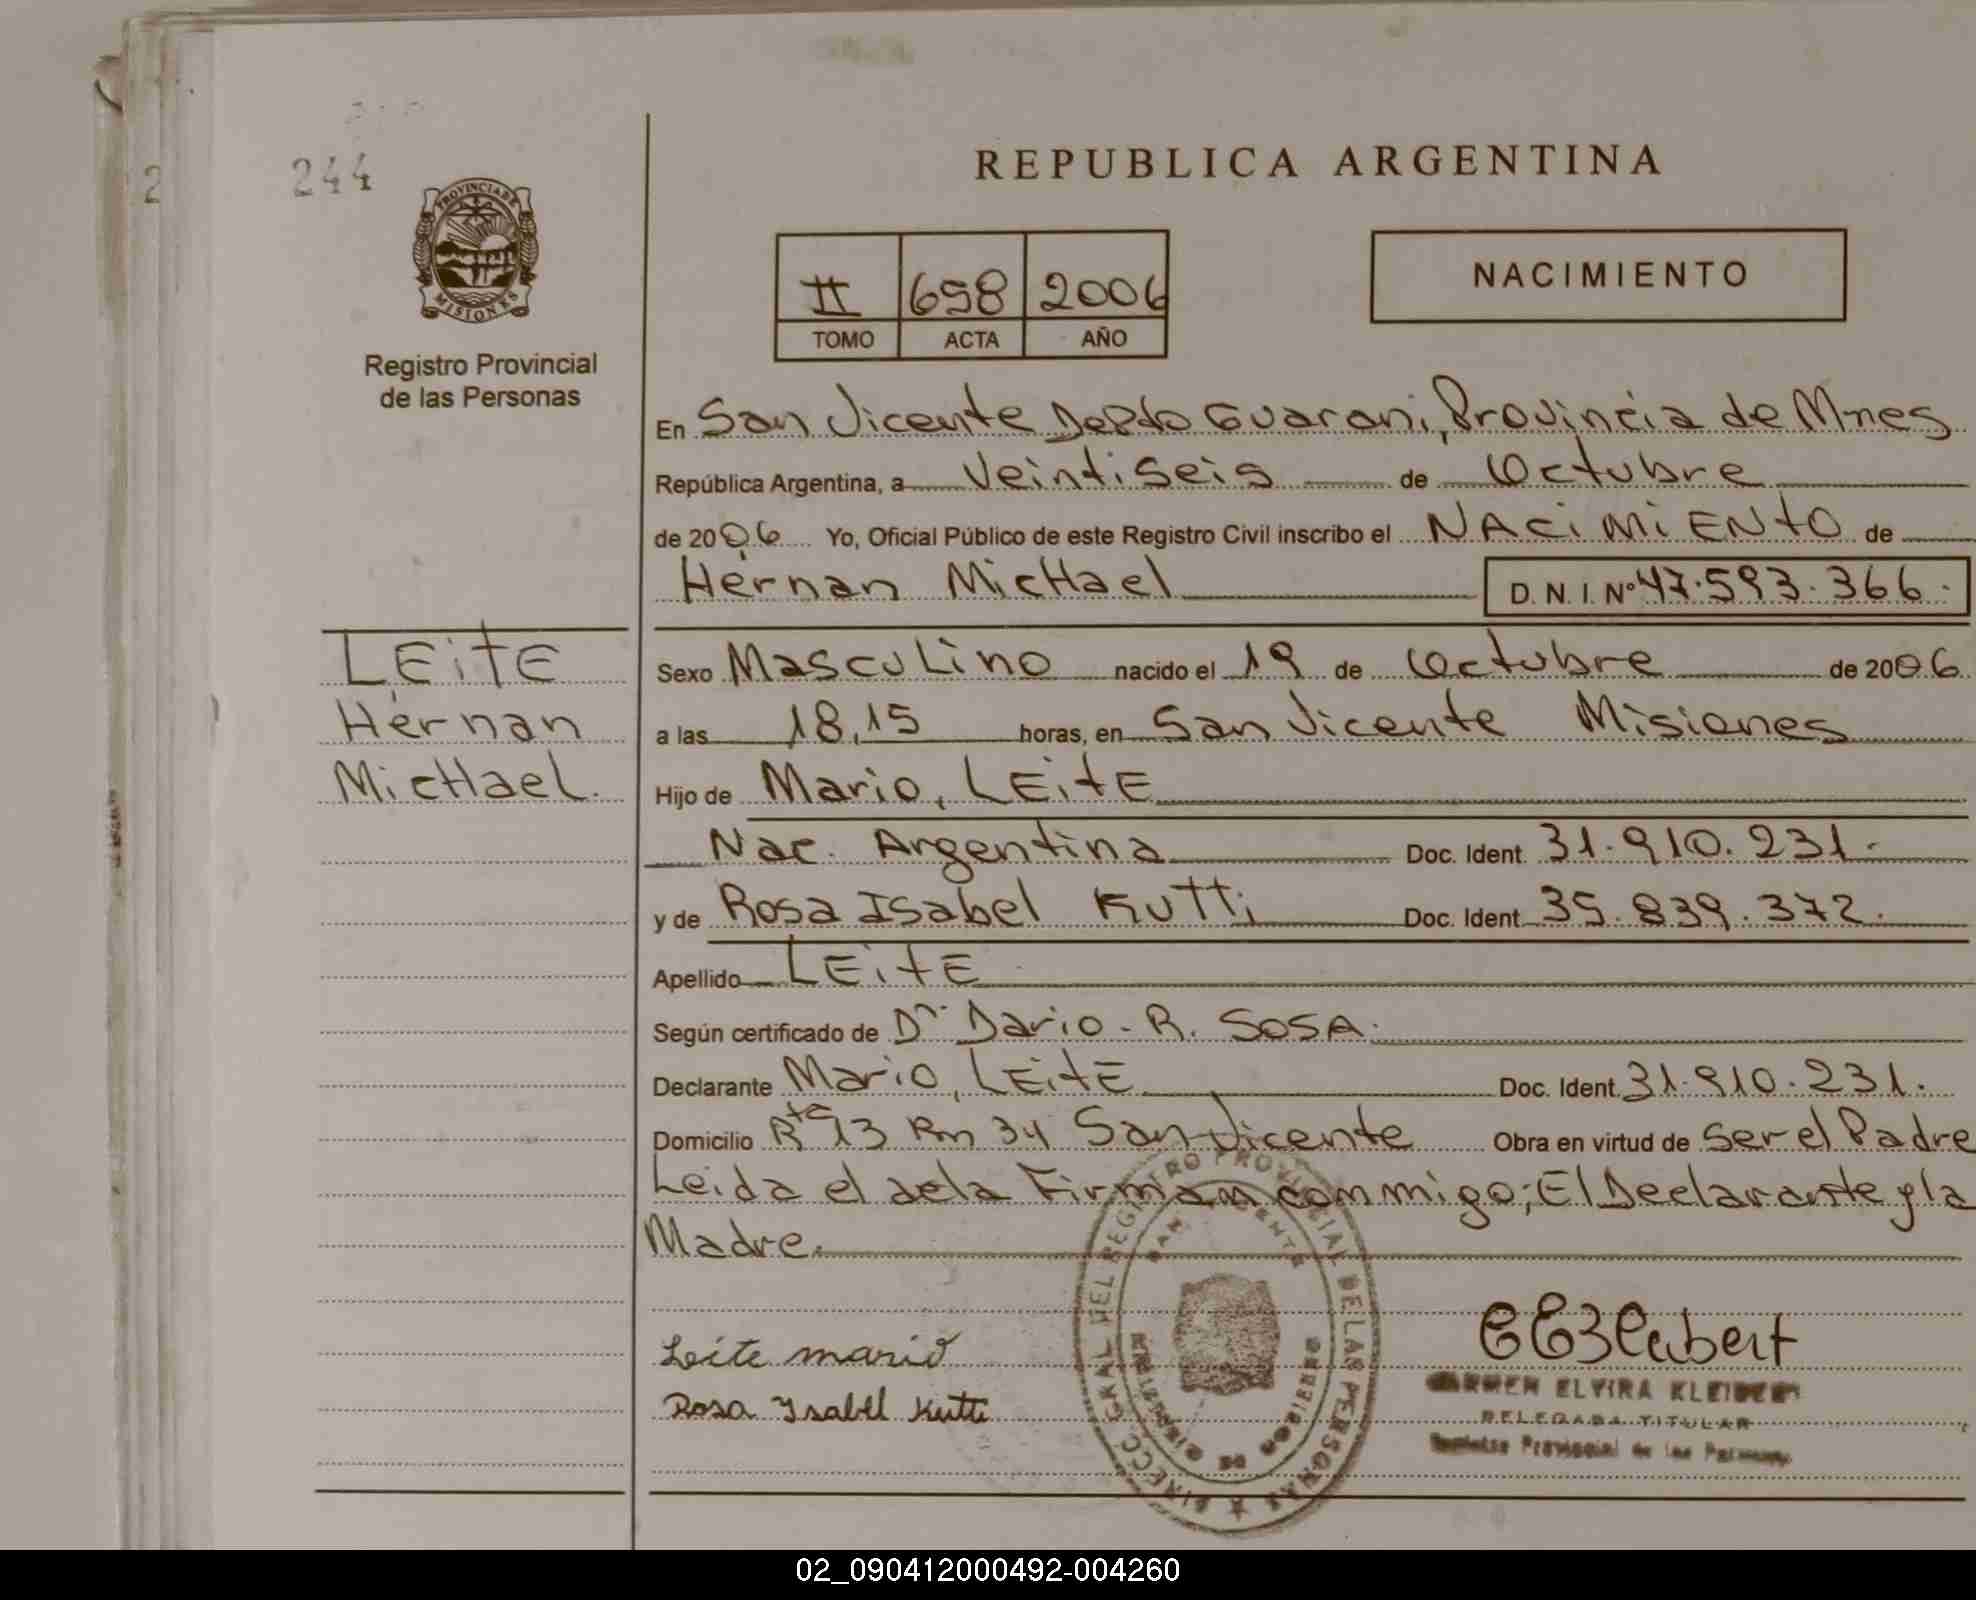 244
PROVINCIA DE
MISIONES
Registro Provincial
de las Personas
REPUBLICA ARGENTINA
II 698 2006
TOMO ACTA AÑO
NACIMIENTO
En San Vicente Depto Guarani, Provincia de Mnes
República Argentina, a Veintiseis de Octubre
de 2006 Yo, Oficial Público de este Registro Civil inscribo el NACIMIENTO de
Hérnan MicHael D. N. I. Nº 47.593.366.
LEitE
Hérnan
MicHael.
Sexo Masculino nacido el 19 de Octubre de 2006
a las 18,15 horas, en San Vicente Misiones
Hijo de Mario, LEitE
Nac. Argentina Doc. Ident. 31.910.231.
y de Rosa Isabel Kutti Doc. Ident. 35.839.372.
Apellido LEitE
Según certificado de Dr Dario - R. SOSA.
Declarante Mario, LEitE Doc. Ident. 31.910.231.
Domicilio Rta 13 Km 34 San Vicente Obra en virtud de Ser el Padre
Leida el acta Firman conmmigo; El Declarante y la
Madre.
DIRECC GRAL DEL REGISTRO PROVINCIAL DE LAS PERSONAS
SAN VICENTE
MINISTERIO DE GOBIERNO
Leite mario
Rosa Ysabel Kutti
CARMEN ELVIRA KLEIBERT
DELEGADA TITULAR
Registro Provincial de las Personas
02_090412000492-004260